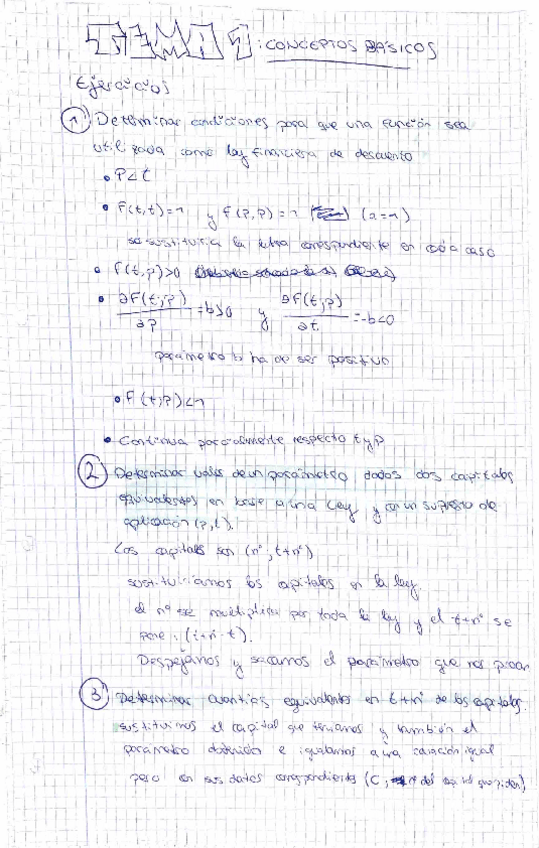 TEMA 1: CONCEPTOS BÁSICOS
Ejercicios
1 Determinar condiciones para que una función sea
utilizada como ley financiera de descuento
• P<t
• F(t,t)=1 y F(p,p)=1 (a=1)
se sustituiría la letra correspondiente en cada caso
• F(t,p)>0
• ∂F(t;p)/∂p =b>0 y ∂F(t;p)/∂t =-b<0
parámetro b ha de ser positivo
• F(t;p)<1
• Continua parcialmente respecto t y p
2 Determinar valor de un parámetro dados dos capitales
equivalentes en base a una ley y con un supuesto de
aplicación (p,t).
Los capitales son (nº, t+nº)
sustituiríamos los capitales en la ley.
el nº se multiplica por toda la ley y el t+nº se
pone:
Despejamos y sacamos el parámetro que nos piden
3 Determinar cuantías equivalentes en t+nº de los capitales.
sustituimos el capital que teníamos y también el
parámetro obtenido e igualamos a una ecuación igual
pero en sus datos correspondientes (C,